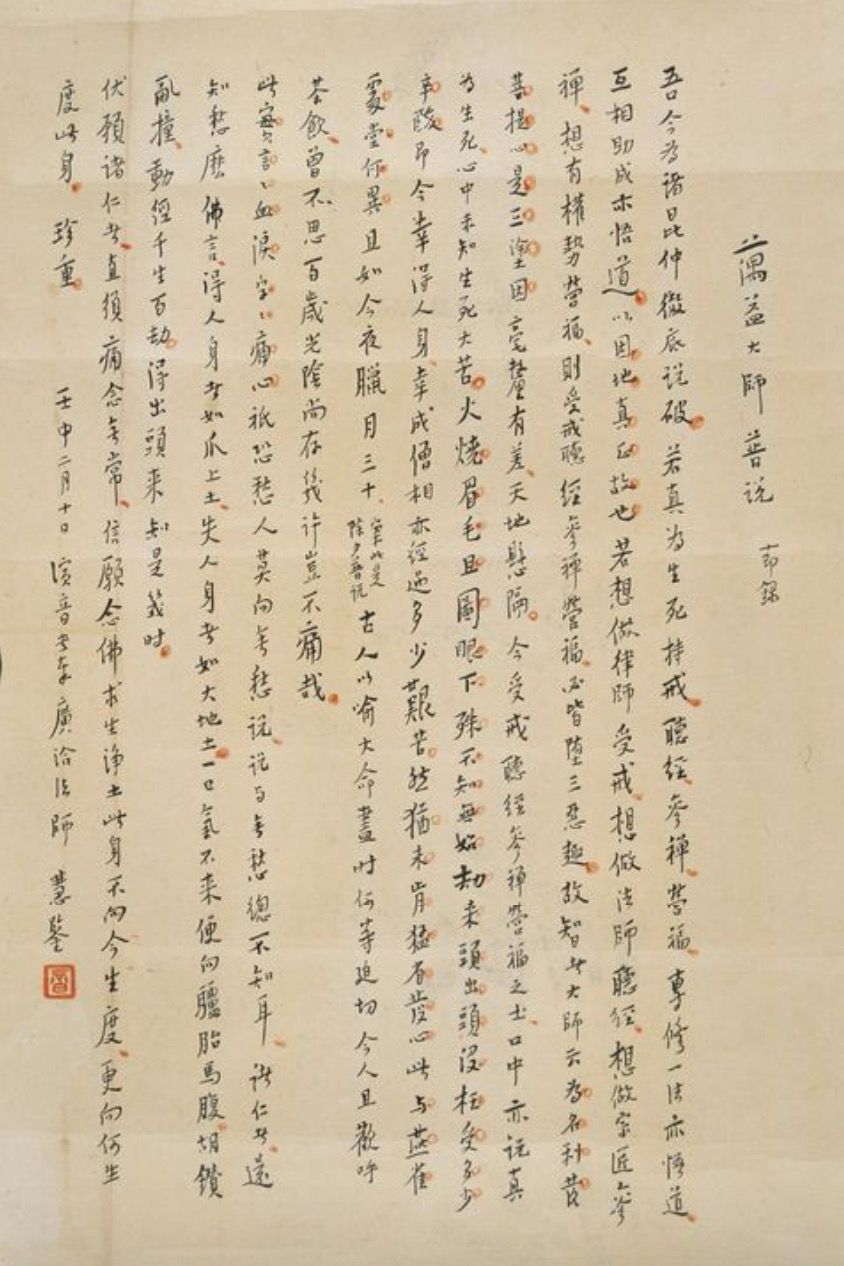 蕅益大師普說 節錄
吾今為諸昆仲徹底說破若真為生死持戒聽經參禪營福專修一法亦悟道
互相助成亦悟道以因地真正故也若想做律師受戒想做法師聽經想做宗匠參
禪想有權勢營福則受戒聽經參禪營福必皆墮三惡趣故智者大師云為名利發
菩提心是三塗因毫釐有差天地懸隔今受戒聽經參禪營福之士口中亦說真
為生死心中未知生死大苦火燒眉毛且圖眼下殊不知無始劫來頭出頭沒枉受多少
辛酸即今幸得人身幸成僧相亦經過多少艱苦然猶未肯猛省發心此與燕雀
處堂何異且如今夜臘月三十案此是除夕普說古人以喻大命盡時何等迫切今人且歡呼
茶飲曾不思百歲光陰尚存幾許豈不痛哉
此寔言言血淚字字痛心祇恐愁人莫向無愁說說與無愁總不知耳諸仁者還
知愁麼佛言得人身者如爪上土失人身者如大地土一口氣不來便向驢胎馬腹胡鑽
亂撞動經千生百劫得出頭來知是幾時
伏願諸仁者直須痛念無常信願念佛求生淨土此身不向今生度更向何生
度此身 珍重 壬申二月十日 演音書奉廣洽法師 慧鑒
音